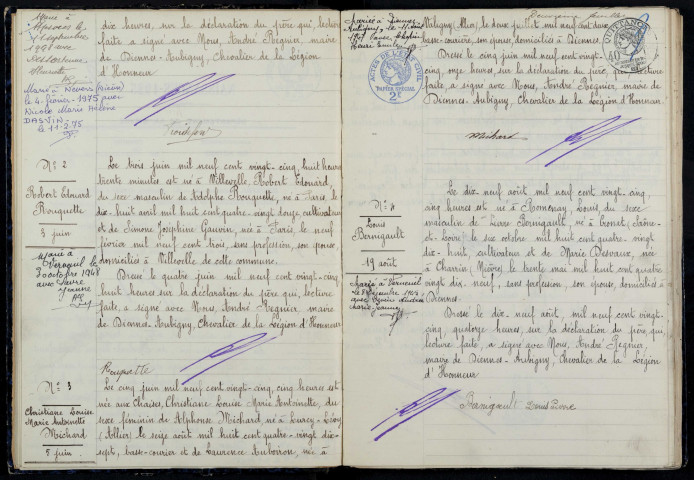 dix heures, sur la déclaration du père qui, lecture
faite a signé avec Nous, André Regnier, maire
de Diennes-Aubigny, Chevalier de la Légion
d'Honneur
Marié à Nevers (Nièvre)
le 4 février 1975 avec
Nicole Marie Hélène
le 11-2-75
N° 2
Robert Edouard
Rouquette
3 juin
Marié à
Verneuil le
3 octobre 1948
avec
Jeanne
Le trois juin mil neuf cent vingt-cinq, huit heures
trente minutes, est né à Villecolle, Robert Edouard,
du sexe masculin de Adolphe Rouquette, né à Paris, le
dix-huit avril mil huit cent quatre-vingt-douze, cultivateur
et de Simone Joséphine Gauvin, née à Paris, le neuf
février mil neuf cent trois, sans profession, son épouse,
domiciliés à Villecolle de cette commune.
Dressé le quatre juin mil neuf cent vingt-cinq
huit heures sur la déclaration du père qui, lecture
faite, a signé avec Nous, André Regnier, maire
de Diennes-Aubigny, Chevalier de la Légion d'Honneur
Rouquette
N° 3
Christiane Louise
Marie Antoinette
Michard
5 juin
Le cinq juin mil neuf cent vingt-cinq, cinq heures est
née aux Chaises, Christiane Louise Marie Antoinette, du
sexe féminin de Alphonse Michard, né à Lurcy-Lévy
(Allier) le seize août mil huit cent quatre-vingt-dix-
sept, basse-courier et de Laurence Auboiron, née à
Deuxième feuille
ACTES DE L'ÉTAT CIVIL
PAPIER SPÉCIAL
2F
(Allier), le deux
basse-courière, son épouse, domiciliés à Diennes.
Dressé le cinq juin mil neuf cent vingt-
cinq, onze heures sur la déclaration du père, qui, lecture
faite, a signé avec Nous, André Regnier, maire de
Diennes-Aubigny, Chevalier de la Légion d'Honneur.
Michard
N° 4
Louis
Bernigault
19 août
Marié à Verneuil
Le dix-neuf août mil neuf cent vingt-cinq,
cinq heures est né à Romenay, Louis, du sexe
masculin de Pierre Bernigault, né à Cronat (Saône-
et-Loire) le six octobre mil huit cent quatre-vingt-
dix-huit, cultivateur et de Marie Desvaux, née
à Charrin (Nièvre) le trente mai mil huit cent quatre
vingt-dix-neuf, sans profession, son épouse, domiciliés à
Diennes.
Dressé le dix-neuf août, mil neuf cent vingt-
cinq, quatorze heures, sur la déclaration du père, qui,
lecture faite, a signé avec Nous, André Regnier,
maire de Diennes-Aubigny, Chevalier de la Légion
d'Honneur